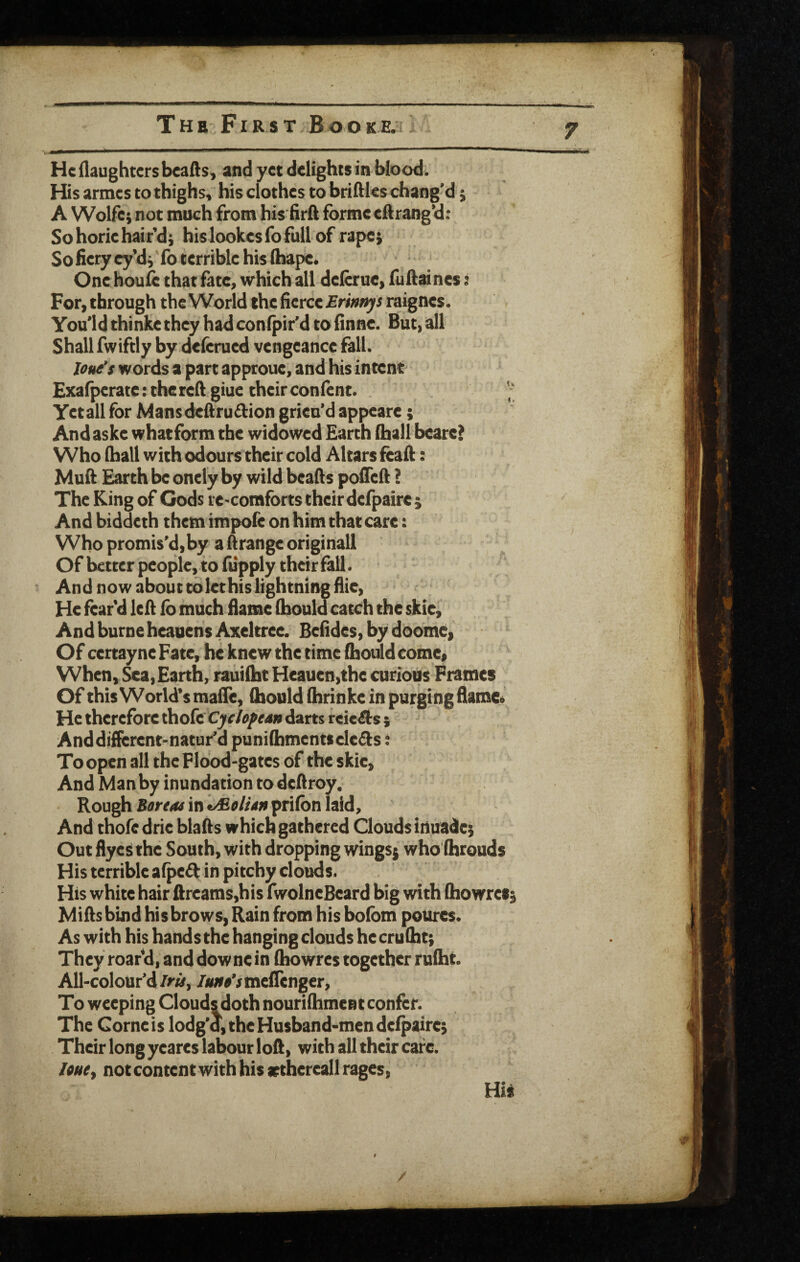 THE FIRST BOOKE. 7
He ſlaughters beaſts, and yet delights in blood.
His armes to thighs, his clothes to briſtles chang'd;
A Wolfe; not much from his firſt forme eſtrang'd:
So horie hair'd; his lookes ſo full of rape;
So fiery ey'd; ſo terrible his ſhape.
One houſe that fate, which all deſerue, ſuſtaines:
For, through the World the fierce Erinnys raignes.
You'ld thinke they had conſpir'd to ſinne. But, all
Shall ſwiftly by deſerued vengeance fall.
Ioue's words a part approue, and his intent
Exaſperate: the reſt giue their conſent.
Yet all for Mans deſtruction grieu'd appeare;
And aske what form the widowed Earth ſhall beare?
Who ſhall with odours their cold Altars feaſt:
Muſt Earth be onely by wild beaſts poſſeſt?
The King of Gods re-comforts their deſpaire;
And biddeth them impoſe on him that care:
Who promis'd, by a ſtrange originall
Of better people, to ſupply their fall.
And now about to let his lightning flie,
He fear'd leſt ſo much flame ſhould catch the skie,
And burne heauens Axeltree. Beſides, by doome,
Of certayne Fate, he knew the time ſhould come,
When, Sea, Earth, rauiſht Heauen, the curious Frames
Of this World's maſſe, ſhould ſhrinke in purging flame.
He therefore thoſe Cyclopean darts reiects;
And different-natur'd puniſhments elects:
To open all the Flood-gates of the skie,
And Man by inundation to deſtroy.
Rough Boreas in Æolian priſon laid,
And thoſe drie blaſts which gathered Clouds inuade;
Out flyes the South, with dropping wings; who ſhrouds
His terrible aſpect in pitchy clouds.
His white hair ſtreams, his ſwolne Beard big with ſhowres;
Miſts bind his brows, Rain from his boſom poures.
As with his hands the hanging clouds he cruſht;
They roar'd, and downe in ſhowres together ruſht.
All-colour'd Iris, Iuno's meſſenger,
To weeping Clouds doth nouriſhment confer.
The Corne is lodg'd, the Husband-men deſpaire;
Their long yeares labour loſt, with all their care.
Ioue, not content with his æthereall rages,
His